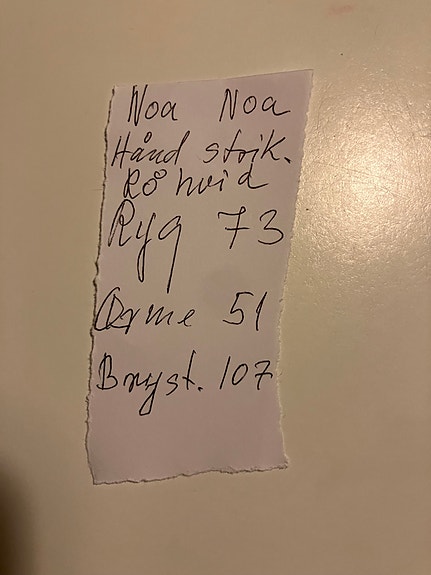 Noa Noa
Hånd strik.
Rå hvid
Ryg 73
Arme 51
Bryst. 107